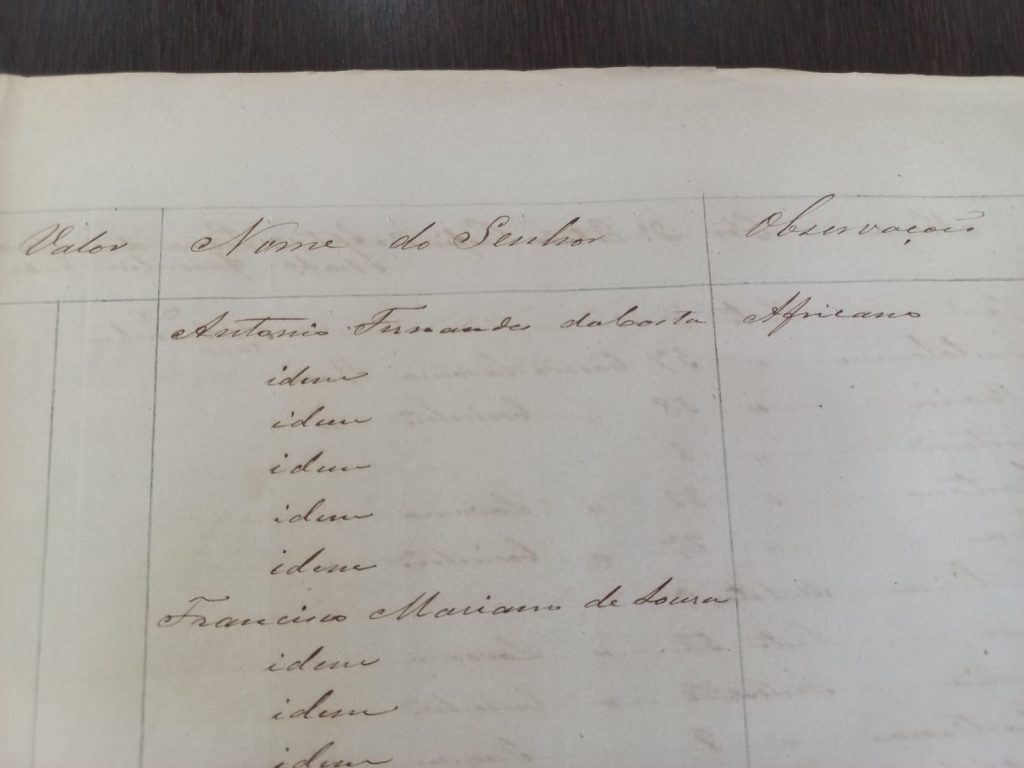 Valor Nome do Senhor Observações
Antonio Fernandes da Costa Africano
idem
idem
idem
idem
idem
Francisco Mariano de Souza
idem
idem
idem